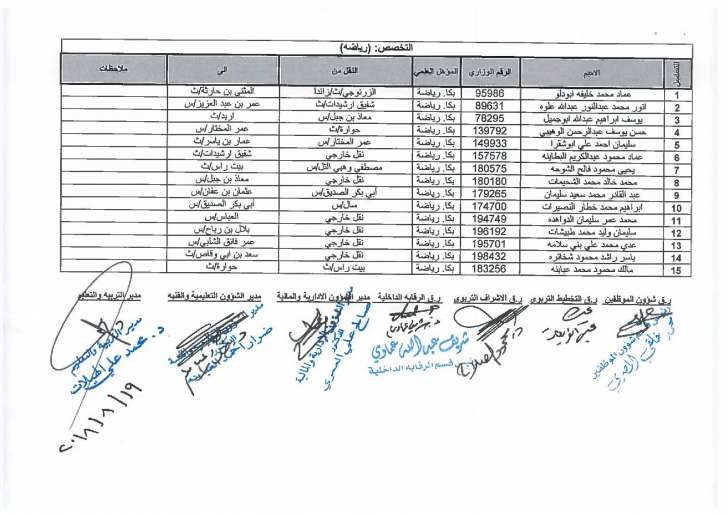 التخصص: (رياضه)
التسلسل الاسم الرقم الوزاري المؤهل العلمي النقل من الى ملاحظات
1 عماد محمد خليفه ابودلو 95986 بكا. رياضة الزرنوجي/ث/زائدا المثنى بن حارثة/ث
2 انور محمد عبدالنور عبدالله علوه 89631 بكا. رياضة شفيق ارشيدات/ث عمر بن عبد العزيز/س
3 يوسف ابراهيم عبدالله ابوجميل 78295 بكا. رياضة معاذ بن جبل/س اربد/ث
4 حسن يوسف عبدالرحمن الوهيبي 139792 بكا. رياضة حوارة/ث عمر المختار/س
5 سليمان احمد علي ابوشقرا 149933 بكا. رياضة عمر المختار/س عمار بن ياسر/ث
6 عماد محمود عبدالكريم البطاينه 157578 بكا. رياضة نقل خارجي شفيق ارشيدات/ث
7 يحيى محمود فالح الشوحه 180575 بكا. رياضة مصطفى وهبي التل/س بيت راس/ث
8 محمد خالد محمد الشحيمات 180180 بكا. رياضة نقل خارجي معاذ بن جبل/س
9 عبد القادر محمد سعيد سليمان 179265 بكا. رياضة أبي بكر الصديق/س عثمان بن عفان/س
10 ابراهيم محمد خطار النصيرات 174700 بكا. رياضة سال/س أبي بكر الصديق/س
11 محمد عمر سليمان الدواهده 194749 بكا. رياضة نقل خارجي العباس/س
12 سليمان وليد محمد طبيشات 196192 بكا. رياضة نقل خارجي بلال بن رباح/س
13 عدي محمد علي بني سلامه 195701 بكا. رياضة نقل خارجي عمر فائق الشلبي/س
14 ياسر راشد محمود شخاتره 198432 بكا. رياضة نقل خارجي سعد بن ابي وقاص/ث
15 مالك محمود محمد عبابنه 183256 بكا. رياضة بيت راس/ث حوارة/ث
ر.ق شؤون الموظفين ر.ق التخطيط التربوي ر.ق الاشراف التربوي ر.ق الرقابه الداخلية مدير الشؤون الادارية والمالية مدير الشؤون التعليمية والفنيه مدير التربيه والتعليم
شريف عبدالله عماوي
قسم الرقابه الداخلية
شؤون الموظفين
الإدارية والمالية
مدير التربية والتعليم
٢٠١٨/٨/١٩